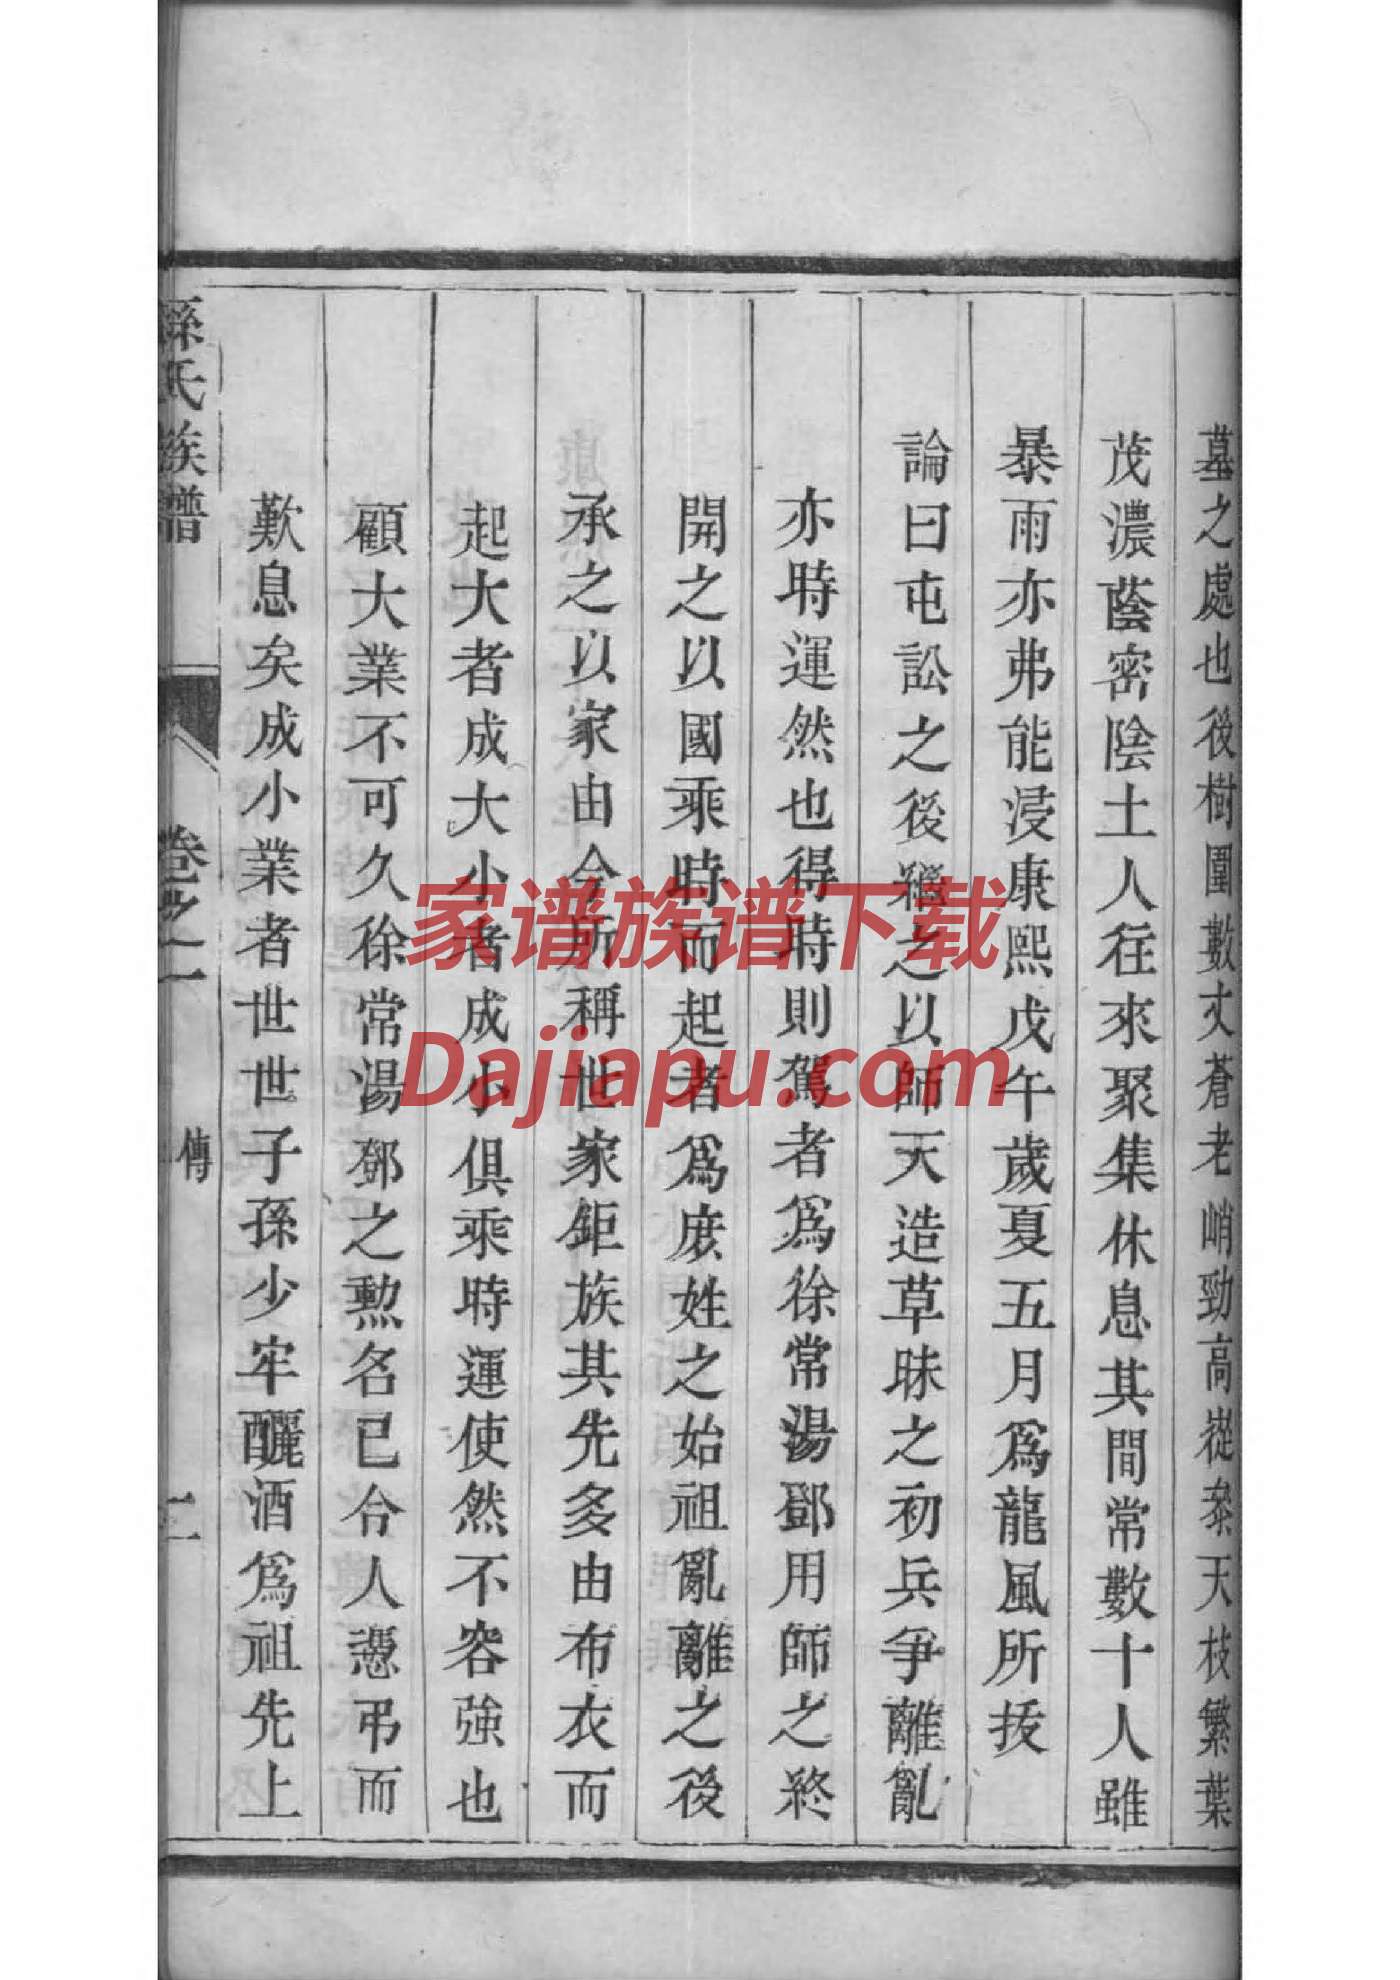 墓之處也後樹圍數丈蒼老峭勁高從泰天枝繁葉
茂濃蔭密陰土人往來聚集休息其間常數十人雖
暴雨亦弗能浸康熙戊午歲夏五月為龍風所拔
論曰屯訟之後繼之以師天造草昧之初兵爭離亂
亦時運然也得時則駕者為徐常湯鄧用師之終
開之以國乘時而起者為庶姓之始祖亂離之後
承之以家由今所稱世家鉅族其先多由布衣而
起大者成大小者成小俱乘時運使然不容強也
顧大業不可久徐常湯鄧之勲名已令人憑弔而
歎息矣成小業者世世子孫少牢釃酒為祖先上
孫氏族譜
卷之一
傳
二
家谱族谱下载
Dajiapu.com